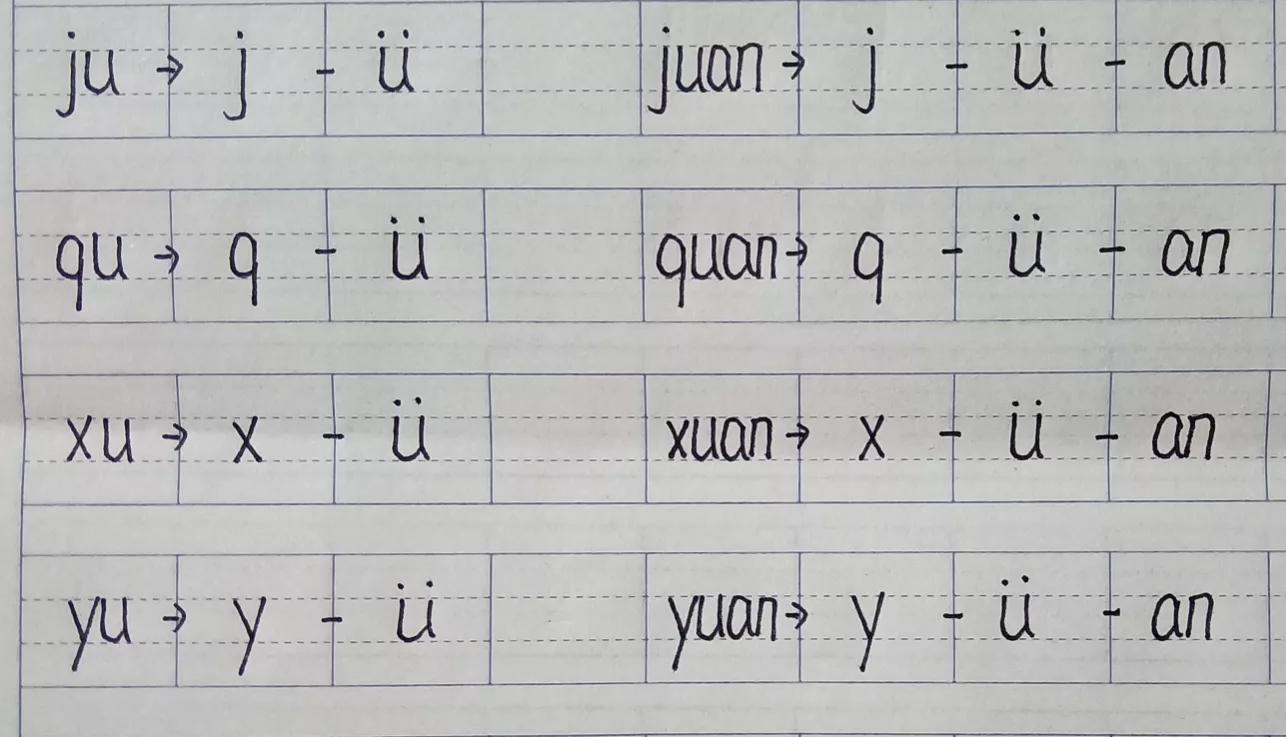 ju → j - ü juan → j - ü - an
qu → q - ü quan → q - ü - an
xu → x - ü xuan → x - ü - an
yu → y - ü yuan → y - ü - an